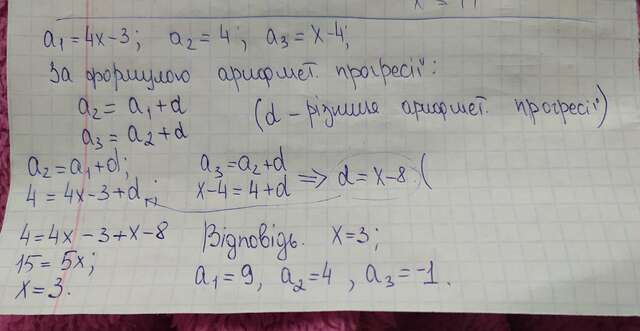 a₁=4x-3; a₂=4; a₃=x-4;
За формулою арифмет. прогресії:
a₂=a₁+d
a₃=a₂+d
(d-різниця арифмет. прогресії)
a₂=a₁+d; a₃=a₂+d
4=4x-3+d; x-4=4+d => d=x-8.
4=4x-3+x-8 Відповідь. x=3;
15=5x; a₁=9, a₂=4, a₃=-1.
x=3.